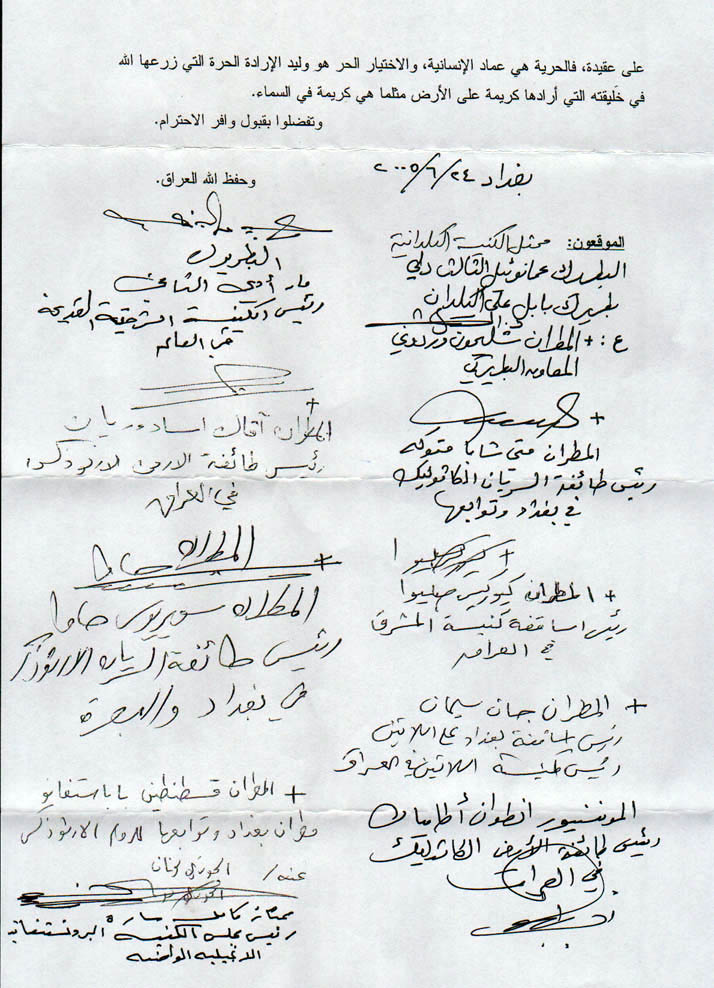 على عقيدة، فالحرية هي عماد الإنسانية، والاختيار الحر هو وليد الإرادة الحرة التي زرعها الله
في خَليقته التي أرادها كريمة على الأرض مثلما هي كريمة في السماء.
وتفضلوا بقبول وافر الاحترام.
وحفظ الله للعراق.
بغداد ٢٠٠٥/٦/٢٤
الموقعون: ممثل الكنيسة الكلدانية
البطريرك عمانوئيل الثالث دلي
بطريرك بابل على الكلدان
ع: + المطران شليمون وردوني
المعاون البطريركي
+
المطران متي شابا متوكه
رئيس طائفة السريان الكاثوليك
في بغداد وتوابعها
+ المطران كيوركيس صليوا
رئيس اساقفة كنيسة المشرق
في العراق
+ المطران جان سليمان
رئيس اساقفة بغداد على اللاتين
رئيس طائفة اللاتين في العراق
المونسنيور انطوان أطاميان
رئيس طائفة الأرمن الكاثوليك
في العراق
البطريرك
مار أدى الثاني
رئيس الكنيسة الشرقية القديمة
في العالم
+
المطران آفاك اسادوريان
رئيس طائفة الارمن الارثوذكس
في العراق
+ المطران حاوا
المطران سويريوس حاوا
رئيس طائفة السريان الارثوذكس
في بغداد والبصرة
+ المطران قسطنطين باباستفانو
مطران بغداد وتوابعها للروم الارثوذكس
عنه/ الخوري
رئيس مجلس الكنيسة البروتستنتية
الانجيلية الوطنية